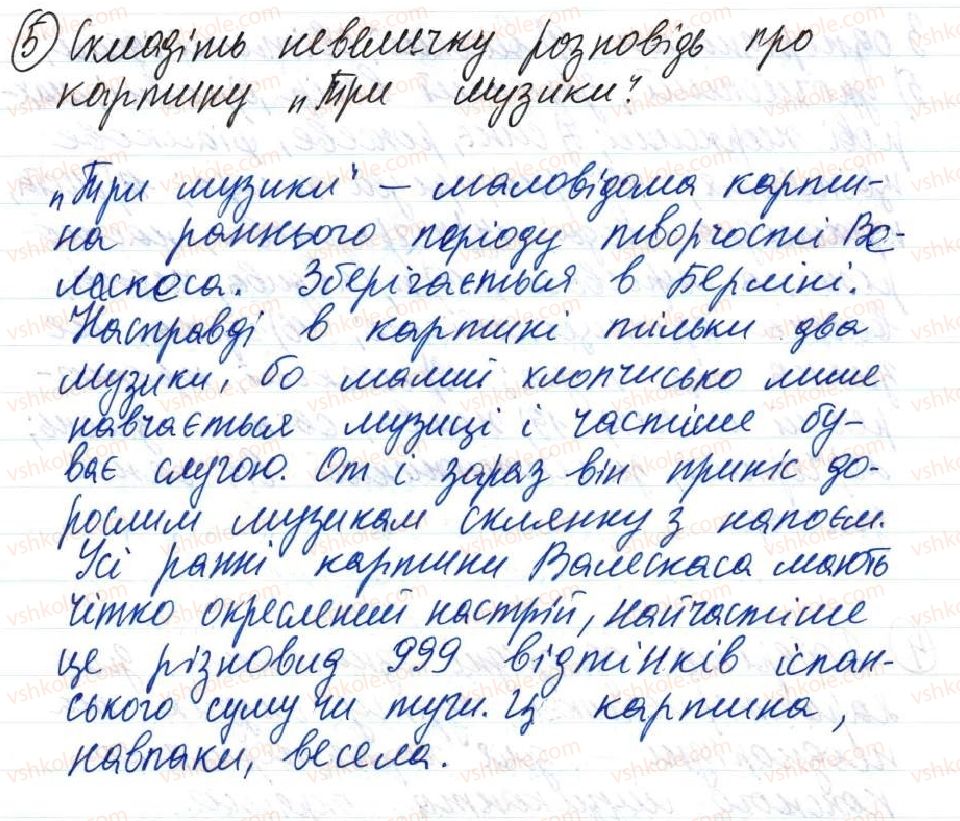 5 Складіть невеличку розповідь про
картину „Три музики".
„Три музики" – маловідома карти-
на раннього періоду творчості Ве-
ласкеса. Зберігається в Берліні.
Насправді в картині тільки два
музики, бо малий хлопчисько лише
навчається музиці і частіше бу-
ває слугою. От і зараз він приніс до-
рослим музикам склянку з напоєм.
Усі ранні картини Валескаса мають
чітко окреслений настрій, найчастіше
це різновид 999 відтінків іспан-
ського суму чи туги. Ц картина,
навпаки, весела.